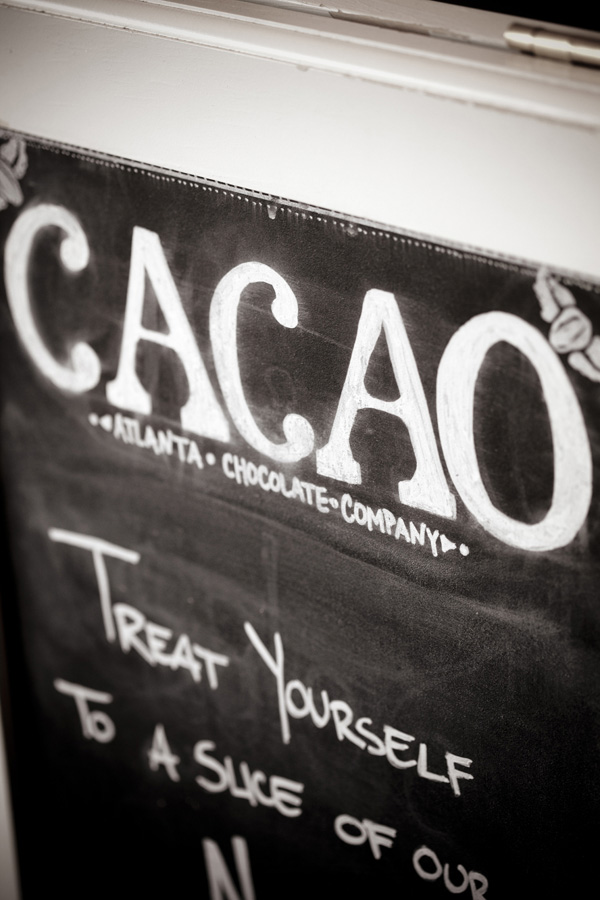 CACAO
ATLANTA • CHOCOLATE • COMPANY
TREAT YOURSELF
TO A SLICE OF OUR
N